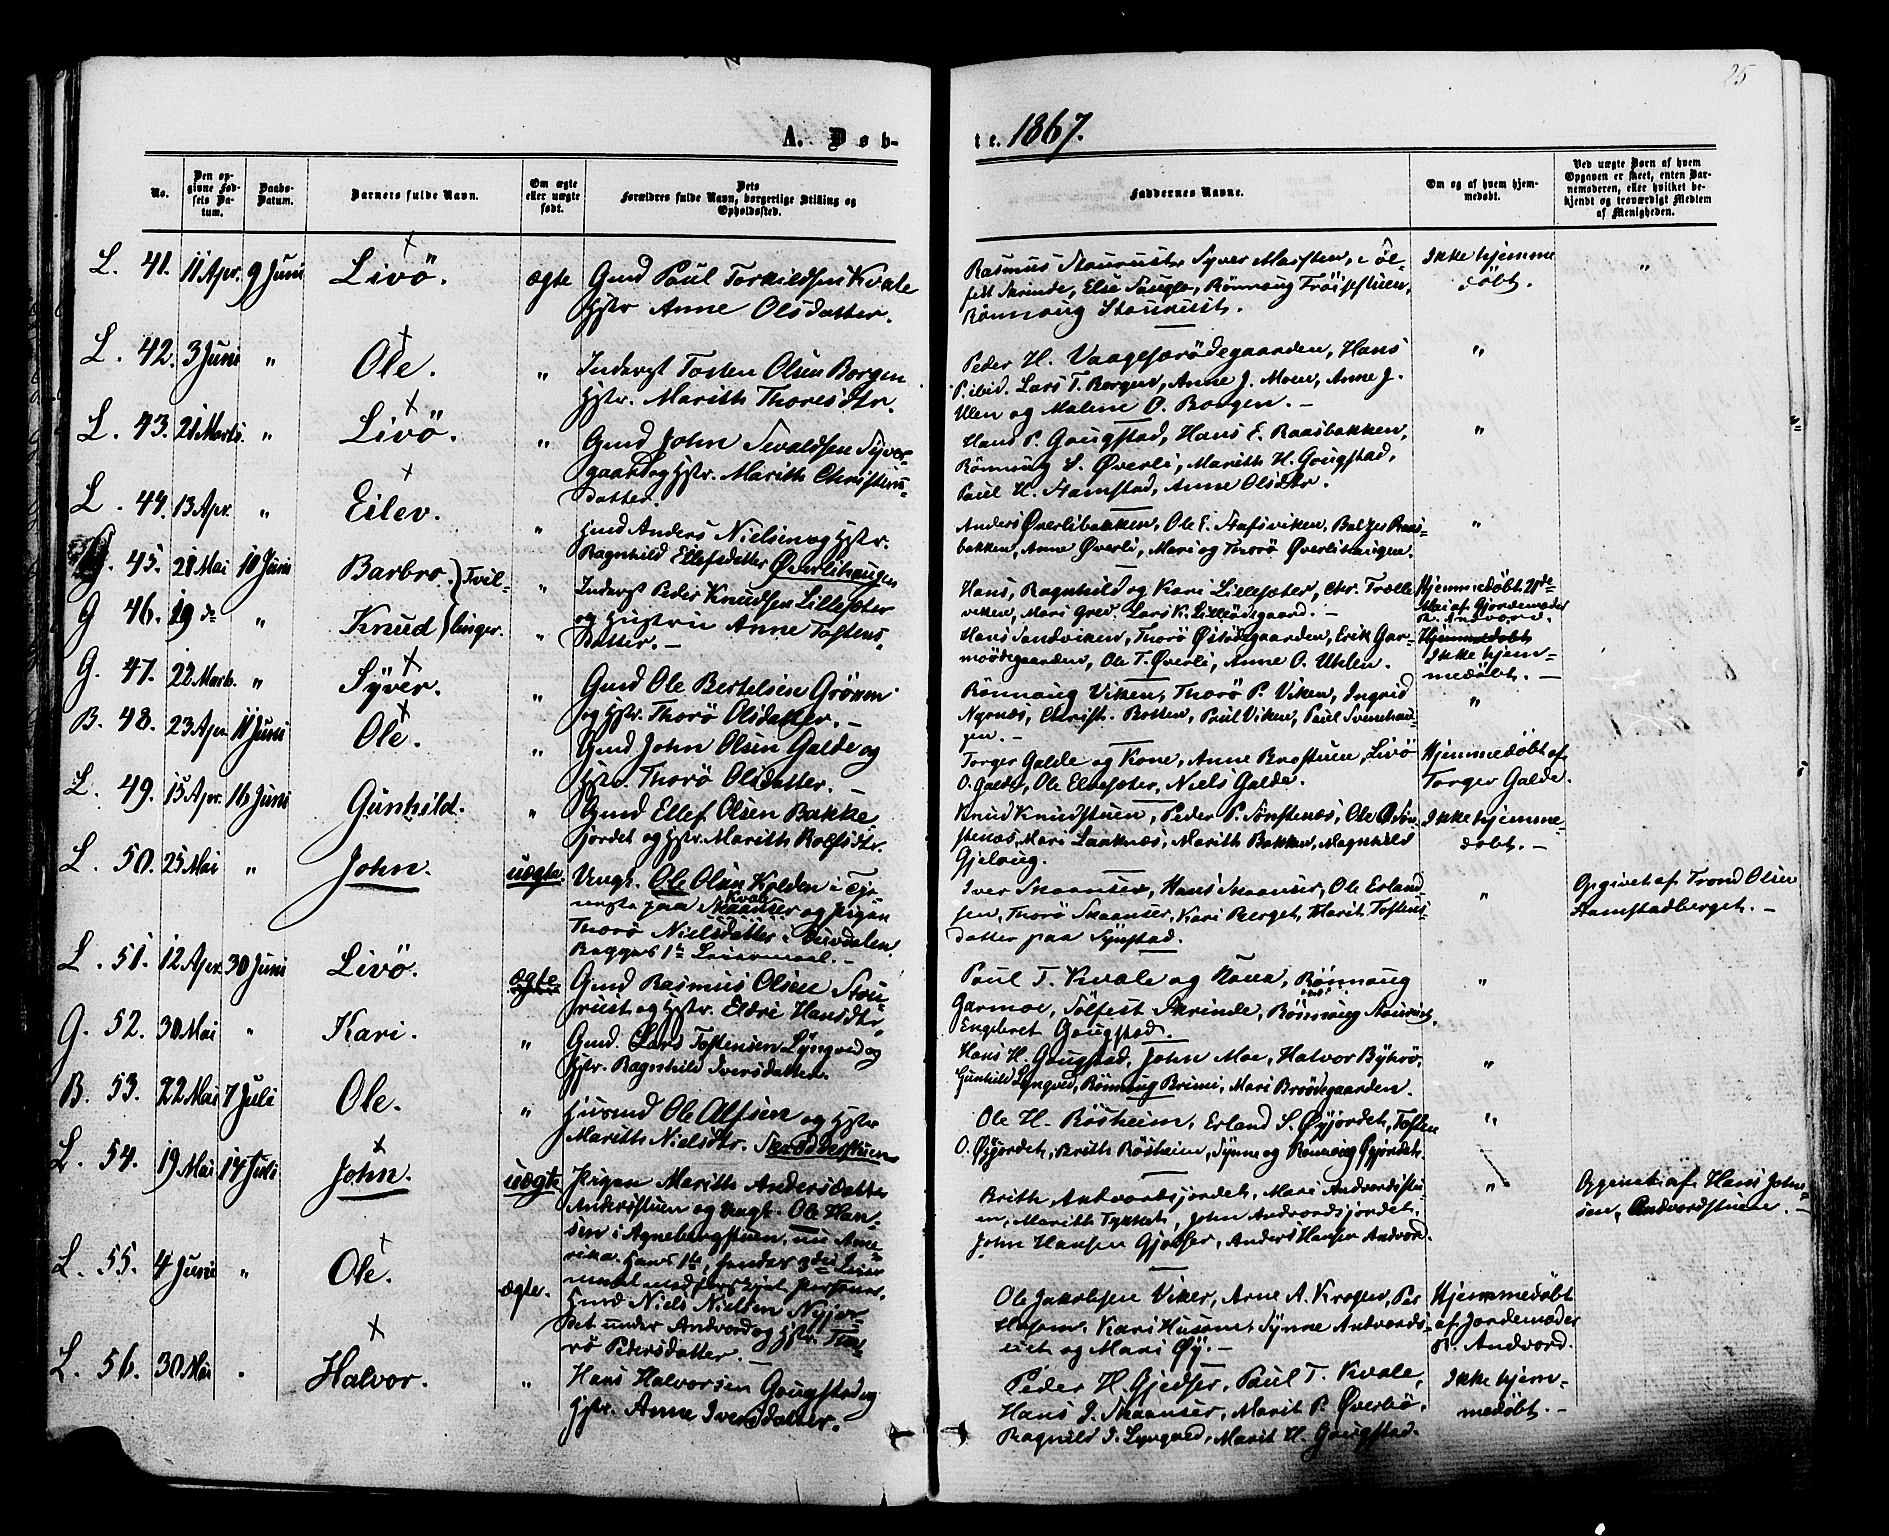 25
A. Døb-
te. 1867.
No.
Den op-
givne Fød-
sels Da-
tum.
Daabs-
Datum.
Barnets fulde Navn.
Om ægte
eller uægte
født.
Dets
Forældres fulde Navn, borgerlige Stilling og
Opholdssted.
Faddernes Navne.
Om og af hvem hjem-
medøbt.
Ved uægte Børn af hvem
Opgaven er skeet, enten Bar-
nemoderen, eller hvilket be-
kjendt og troværdigt Medlem
af Menigheden.
L. 41. 11 Apr. 9 Juni Livö. ægte Gmd Paul Torkildsen Kvale
Hstr Anne Olsdatter.
Rasmus Staurust, Syver Marsten, Söl-
fest Skrinde, Else Saugle, Rönnaug Fröisestuen,
Rönnaug Staurust.
Ikke hjemme
döbt.
"
L. 42. 3 Juni " Ole. " Inderst Tosten Olsen Borgen
Hstr. Marith Thoresdtr.
Peder H. Vaagesærödegaarden, Hans
P. ibid. Lars T. Borgen, Anne J. Moen, Anne J.
Ulen og Malene O. Borgen. –
"
L. 43. 21 Marts. " Livö. " Gmd John Sevaldsen Syver-
gaard og Hstr. Marith Christens-
datter.
Hans P. Gougstad, Hans E. Raasbakken,
Rönnaug S. Øverli, Marith H. Gougstad,
Paul H. Stamstad, Anne Olsdtr.
"
L. 44. 13 Apr. " Eilev. " Hmd Anders Nielsen og Hstr.
Ragnhild Ellefsdatter Øverlihaugen
Anders Øverlibakken, Ole E. Stafsviken, Balzer Raas-
bakken, Anne Øverli, Mari og Thorö Øverlihaugen.
"
G. 45. 21 Mai 10 Juni Barbro. } Tvil- " Inderst Peder Knudsen Lillesæter
G 46. 19 de " Knud } linger. " og Hustru Anne Tostens-
datter. –
Hans, Ragnhild og Kari Lillesæter, Chr. Trolle
viken, Mari Grev. Lars K. Lilleödegaard. –
Hjemmedøbt 21de
Mai af Gjordemoder
R. Andvord.
Hans Sandviken, Thorö Østödegaarden, Erik Gar-
moödegaarden, Ole T. Øverli, Anne O. Uhlen.
Hjemmedøbt
G. 47. 22 Marts. " Syver. " Gmd Ole Bertelsen Grönn
og Hstr. Thorö Olsdatter. –
Rönnaug Viken, Thorö P. Viken, Ingrid
Nyrnæs, Christ. Botten, Paul Viken, Paul Svenshau-
gen. –
Ikke hjem-
medøbt. –
"
B. 48. 23 Apr. 11 Juni Ole. " Gmd John Olsen Galde og
Hstr. Thorö Olsdatter. –
Torger Galde og Kone, Anne Brostuen, Livö
O. Galde, Ole Elvesæter, Niels Galde.
Hjemmedøbt af
Torger Galde.
L. 49. 15 Apr. 16 Juni Gunhild. " Gmd Ellef Olsen Bakke-
jordet og Hstr. Marith Rolfsdtr.
Knud Knudstuen, Peder P. Sörstenæs, Ole Ø. Sör-
stenæs, Mari Laaknæs, Marith Bakken, Magnhild
Gjeloug.
Ikke hjemme-
døbt. –
L. 50. 25 Mai " John. uægte. Ungk. Ole Olsen Kolden i Tje-
neste paa Skaanser Kvale og Pigen
Thorö Nielsdatter i Buvdalen.
Begges 1ste Leiermaal. –
Iver Skaanser, Hans Skaanser, Ole Erland-
sen, Thorö Skaanser, Kari Berget, Marit Tostens-
datter paa Synstad.
"
Opgivet af Trond Olsen
Aamstadberget. –
L. 51. 12 Apr. 30 Juni Livö. ægte Gmd Rasmus Olsen Stou-
rust og Hstr. Eldri Hansdtr.
Paul T. Kvale og Kona, Rönnaug
Garmoe, Sölfest Skrinde, Rönnoug Staurust,
Engebret Gougstad.
"
G. 52. 30 Mai " Kari. " Gmd. Lars Tostensen Lyngved og
Hstr. Ragnhild Iversdatter.
Hans H. Gougstad, John Moe, Halvor Byhrö,
Gunhild Lyngved, Rönnaug Brimi, Mari Broödegaarden.
"
B. 53. 22 Mai 7 Juli Ole. " Husmd Ole Alfsen og Hstr
Marith Nielsdtr. Skrödderstuen
Ole H. Rösheim, Erland S. Øyjordet, Tosten
O. Øyjordet, Brith Rösheim, Synne og Rönnaug Øyjordet.
"
L. 54. 19 Mai 14 Juli John. uægte Pigen Marith Andersdatter
Ankerstuen og Ungk. Ole Han-
sen i Agnebergstuen, nu Ame-
rika. Hans 1ste, hendes 3die Leier
maal med forskjel. Personer.
Brith Andvordsjordet, Mari Andvordstu-
en, Marith Tykket, John Andvordsjordet,
John Hansen Gjedser, Anders Hansen Andvord.
"
Opgivet af Hans John-
sen, Andvordstuen. –
L. 55. 4 Juni " Ole. ægte. Hmd Niels Nielsen Nyjor-
det under Andvord og Hstr. Tho-
rö Pedersdatter. –
Ole Jakobsen Viker, Arne A. Krogen, Per
Husom, Kari Husom, Synne Andvords-
eiet og Mari Øy. –
Hjemmedøbt
af Jordemoder
R. Andvord.
L. 56. 30 Mai " Halvor. " Hans Halvorsen Gougstad og
Hstr. Anne Iversdatter.
Peder H. Gjedser, Paul T. Kvale,
Hans I. Skaanser, Marit P. Øverbö,
Ragnild I. Lyngved, Marit H. Gougstad.
Ikke hjem-
medøbt. –